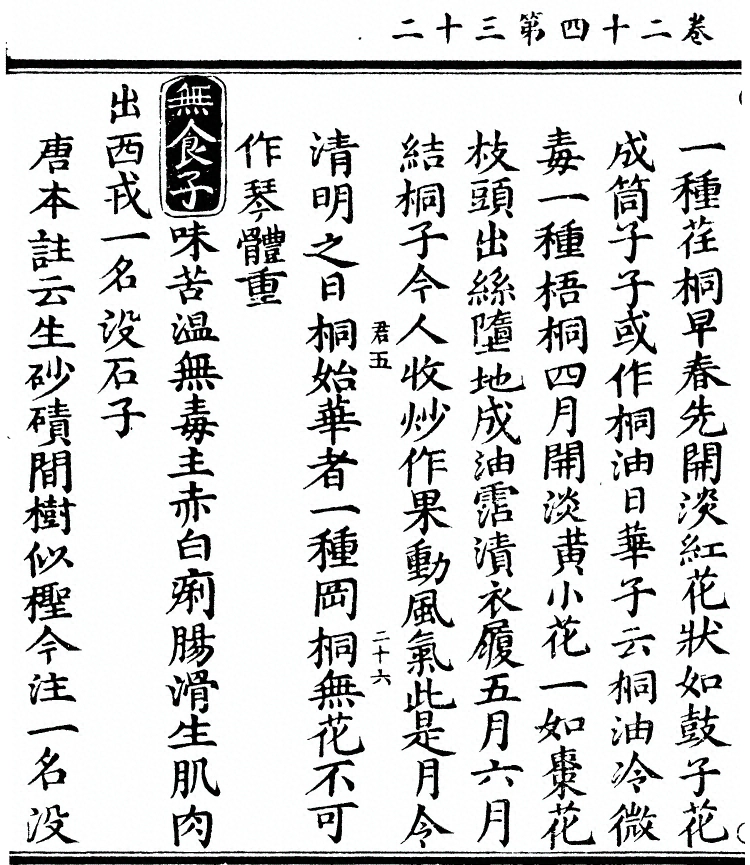 卷二十四第三十二
一種荏桐早春先開淡紅花狀如鼓子花
成筒子子或作桐油日華子云桐油冷微
毒一種梧桐四月開淡黃小花一如棗花
枝頭出絲墮地成油霑漬衣履五月六月
結桐子今人收炒作果動風氣此是月令
君五 二十六
清明之日桐始華者一種岡桐無花不可
作琴體重
無食子味苦溫無毒主赤白痢腸滑生肌肉
出西戎一名没石子
唐本註云生砂磧間樹似檉今注一名没